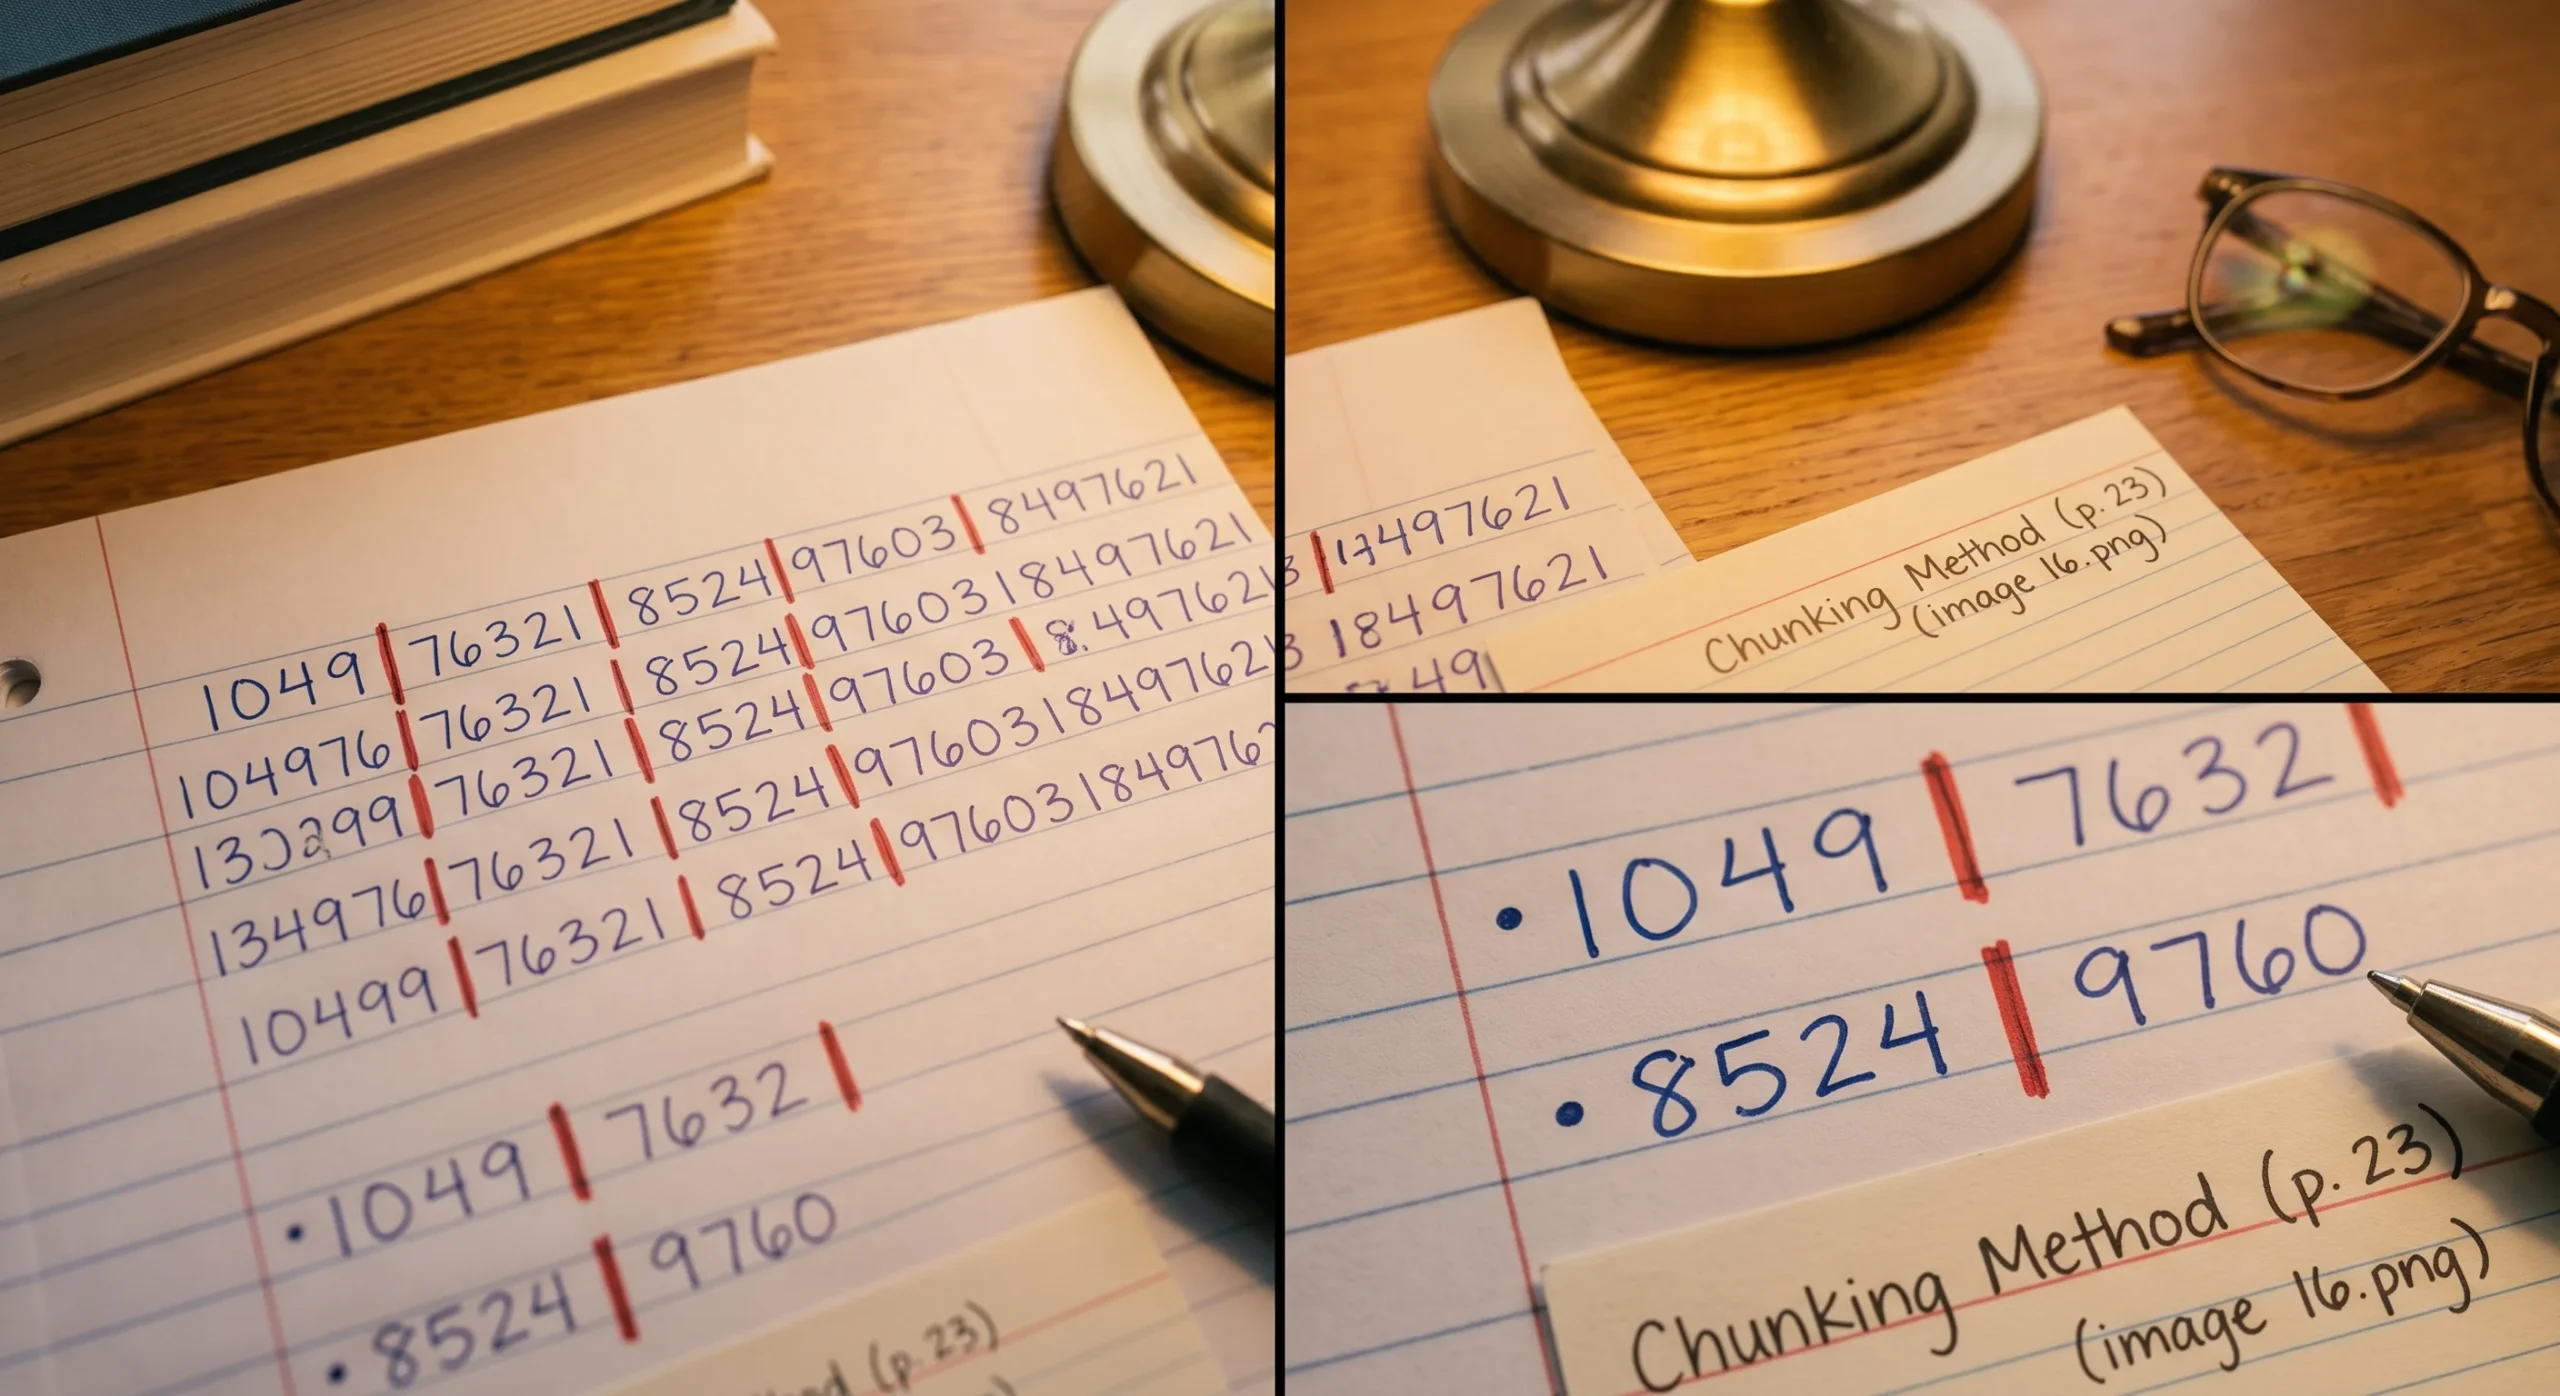 1049 | 76321 | 8524 | 97603 | 8497621
104976 | 76321 | 8524 | 9760318497621
76321 | 8524 | 97603 | 8. 497621
134976 | 76321 | 8524 | 976031849762
10499 | 76321 | 8524 | 97603184976
• 1049 | 7632 |
• 8524 | 9760
(p. 23)
497621
18497621
49
Chunking Method (p. 23)
(image 16.png)
• 1049 | 7632 |
• 8524 | 9760
Chunking Method (p. 23)
(image 16.png)